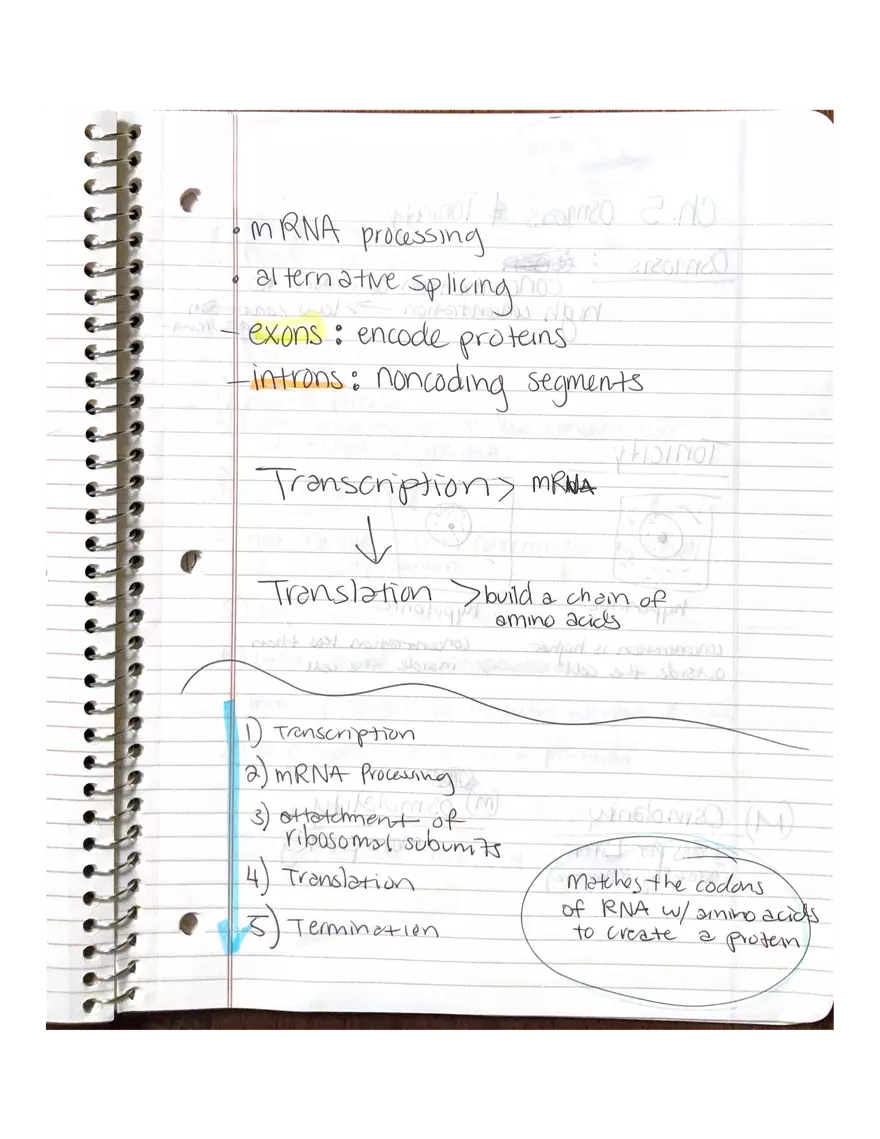 • mRNA processing
• alternative splicing
– exons : encode proteins
– introns : noncoding segments
Transcription > mRNA
↓
Translation > build a chain of
amino acids
1) Transcription
2) mRNA Processing
3) attatchment of
ribosomal subunits
4) Translation
5) Termination
Matches the codons
of RNA w/ amino acids
to create a protein